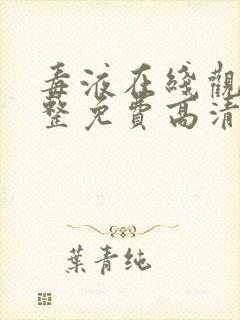 毒液在綫觀
整免費高清
葉青純